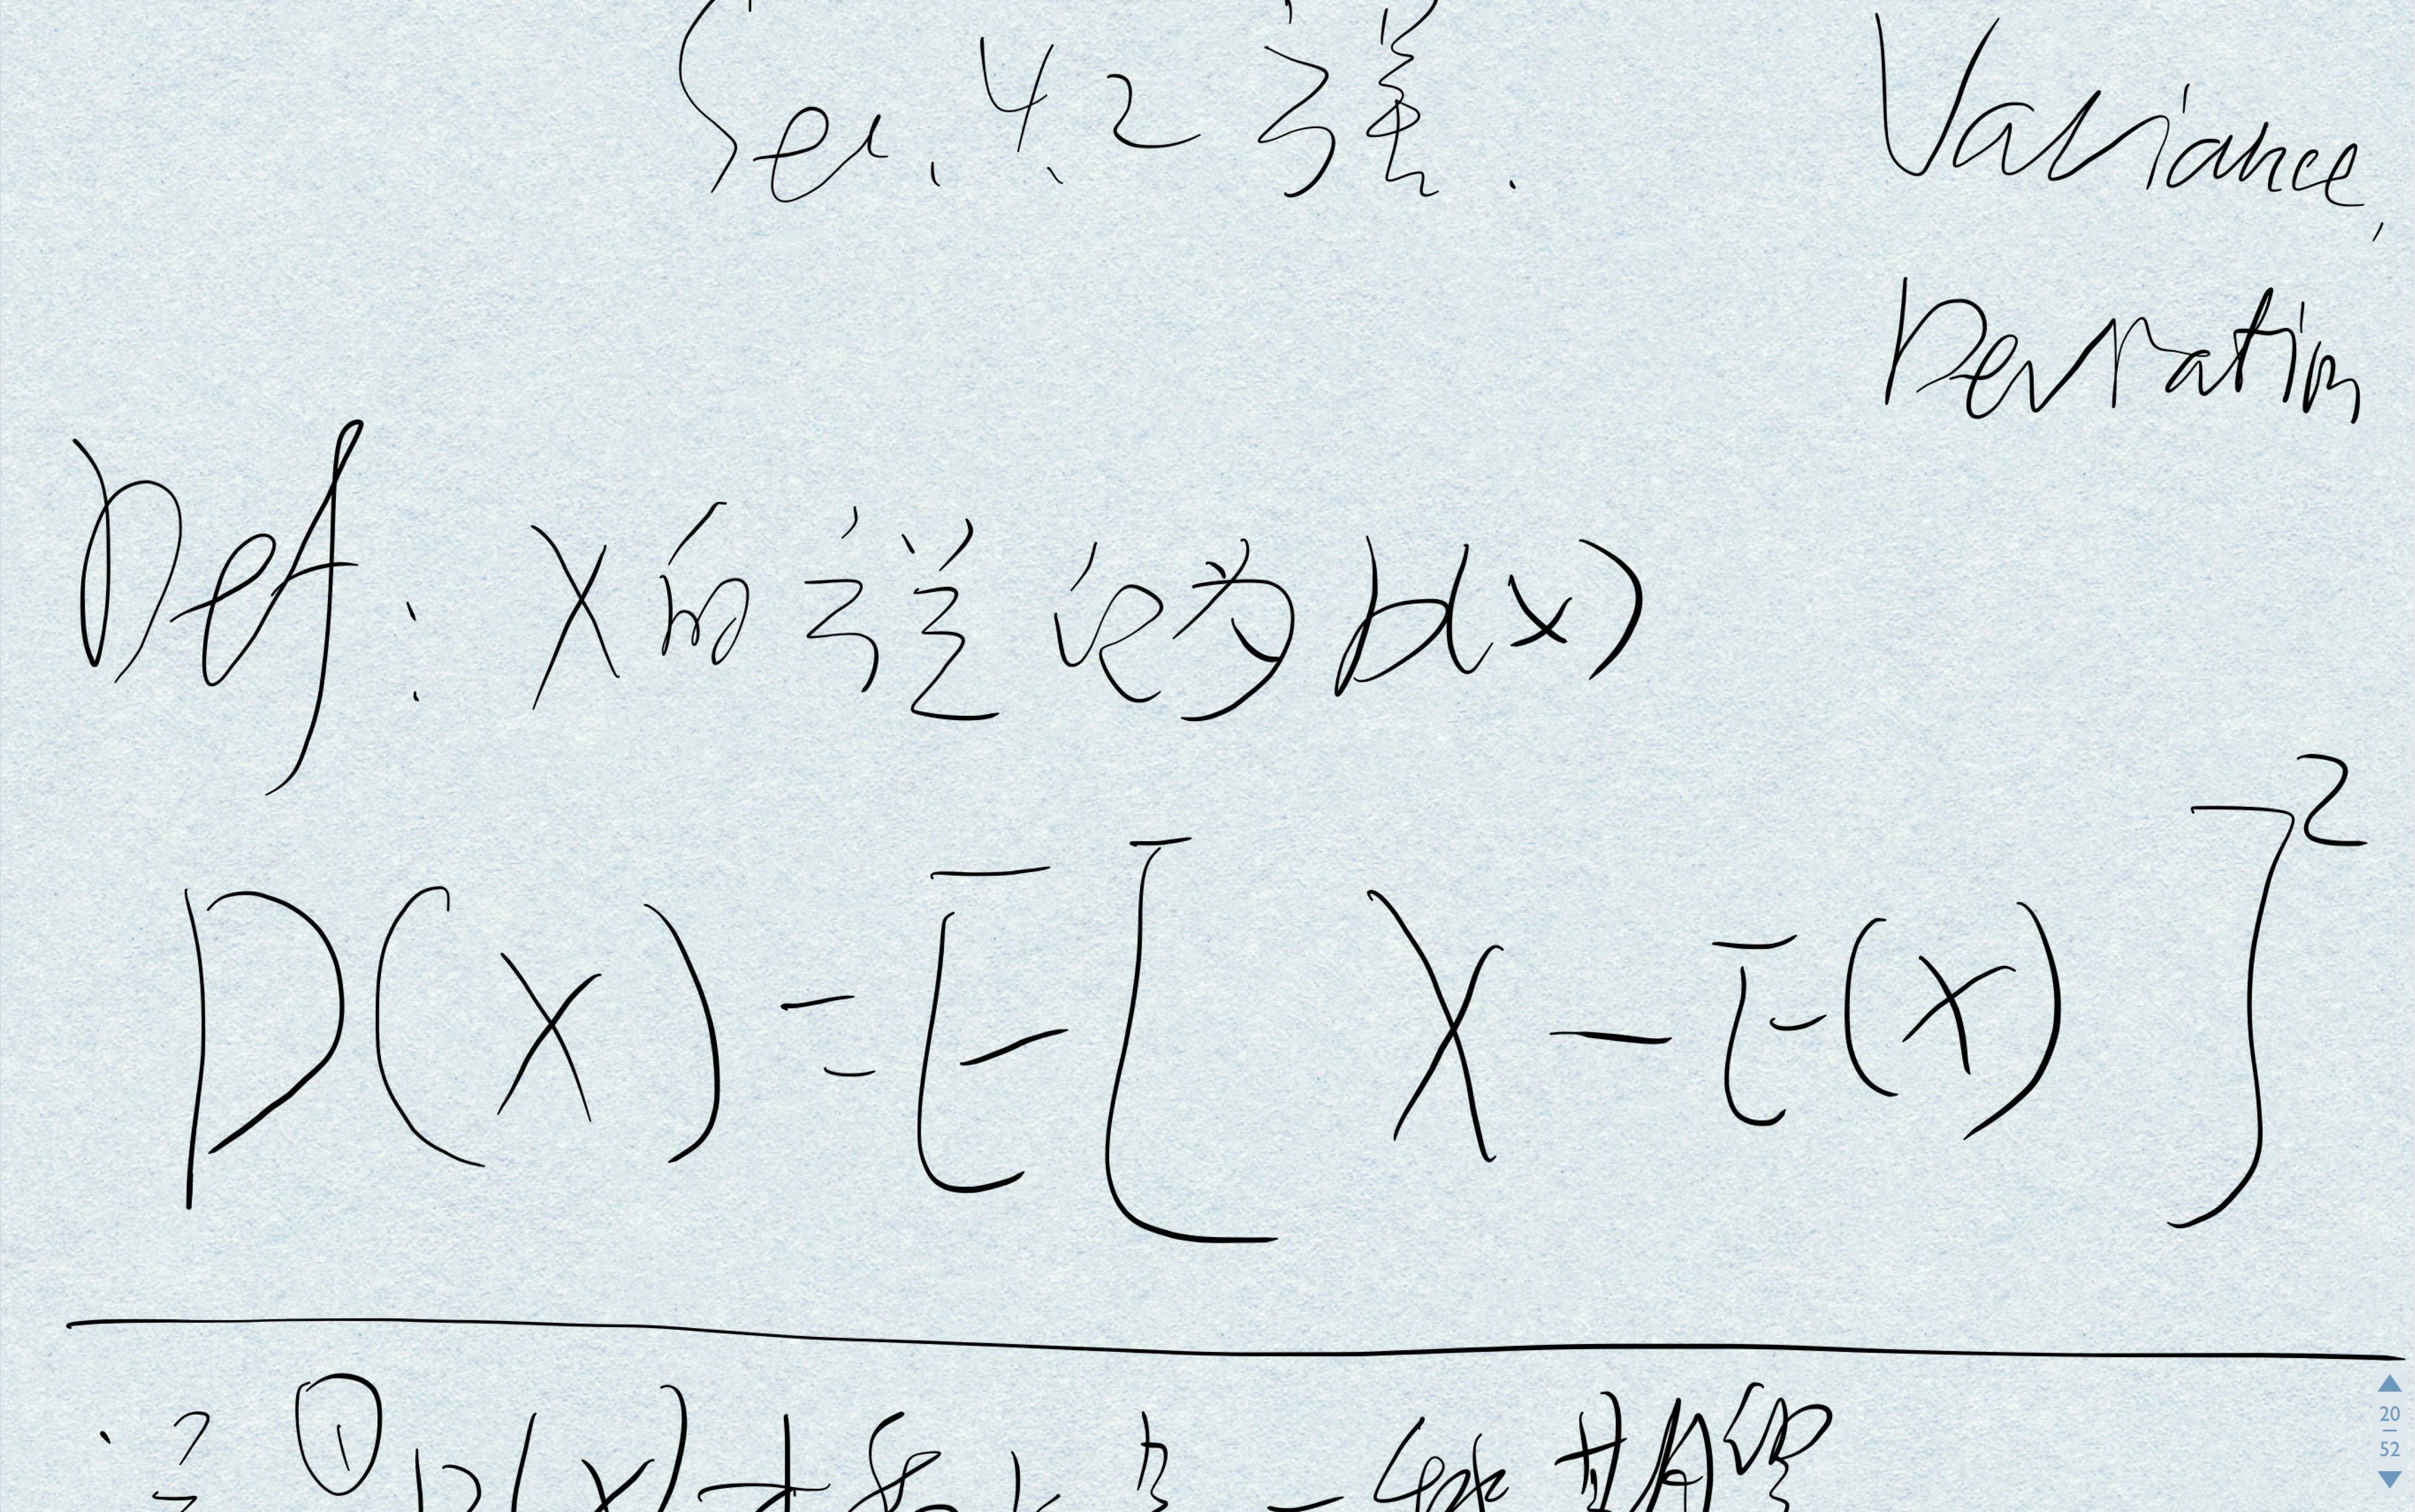 Sec. 4.2 方差. Variance,
Deviation
Def: X的方差记为D(X)
D(X)=E[X-E(X)]²
注①D(X)本质上是一种期望
20
52